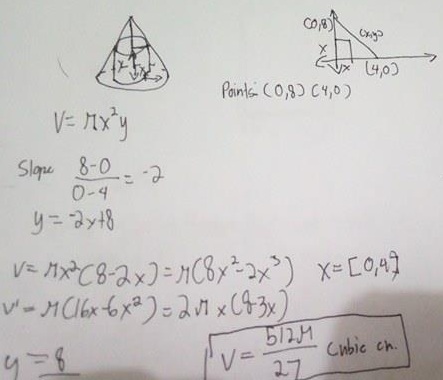 (0,8)
(x,y)
x
x
(4,0)
x
Points: (0,8) (4,0)
V = πx²y
Slope 8-0/0-4 = -2
y = -2x+8
V = πx²(8-2x) = π(8x²-2x³) x = [0,4]
V' = π(16x-6x²) = 2πx(8-3x)
y = 8
V = 512π/27 cubic cm.